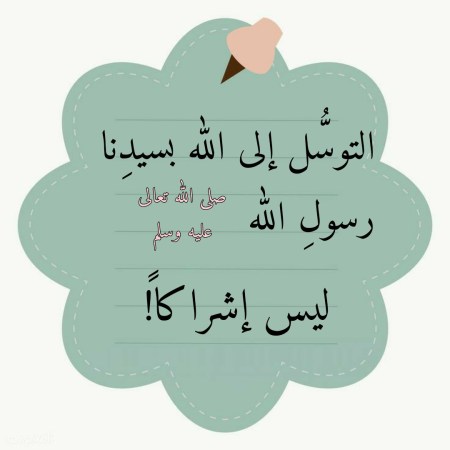 التوسُّل إلى الله بسيدِنا
رسولِ الله صلى الله تعالى عليه وسلم
ليس إشراكاً!